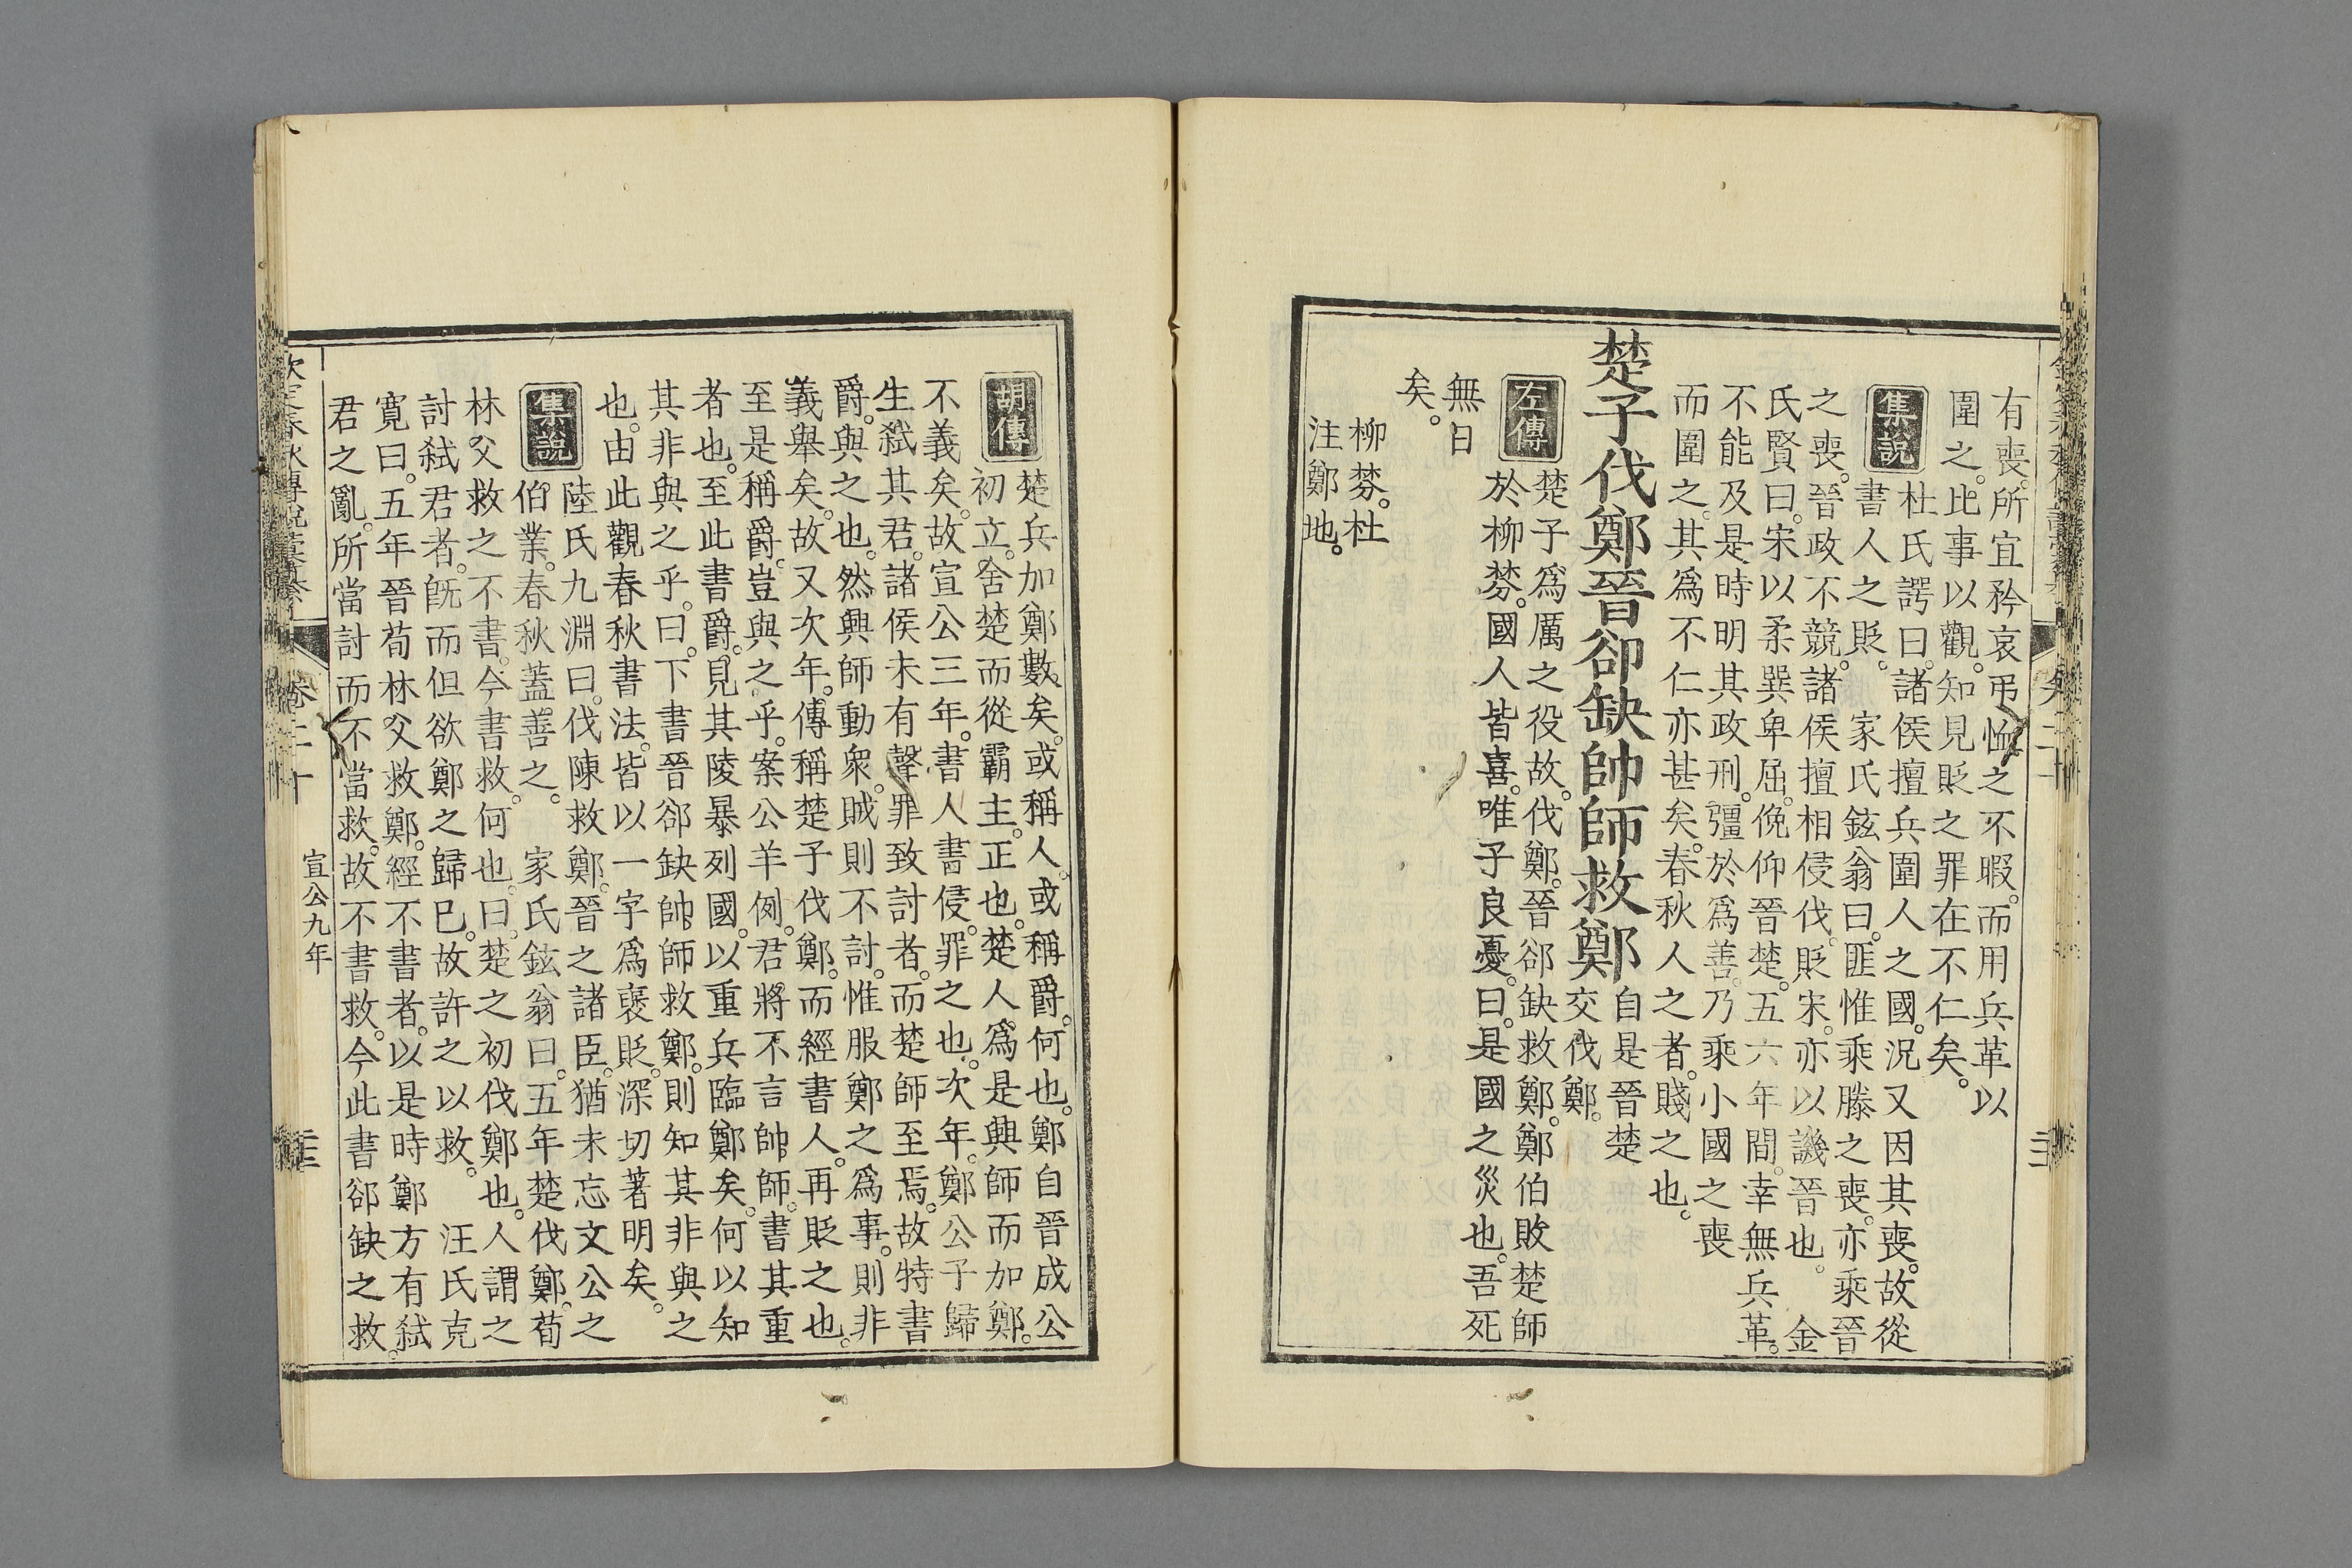 有喪。所宜矜哀弔恤之不暇。而用兵革以
圍之。比事以觀。知見貶之罪在不仁矣。
集說
杜氏諤曰。諸侯擅兵圍人之國。況又因其喪。故從
書人之貶。家氏鉉翁曰。匪惟乘滕之喪。亦乘晉
之喪。晉政不競。諸侯擅相侵伐。貶宋。亦以譏晉也。金
氏賢曰。宋以柔巽卑屈。俛仰晉楚。五六年間。幸無兵革。
不能及是時明其政刑。彊於爲善。乃乘小國之喪
而圍之。其爲不仁亦甚矣。春秋人之者。賤之也。
楚子伐鄭晉郤缺帥師救鄭
自是晉楚
交伐鄭。
左傳
楚子爲厲之役故。伐鄭。晉郤缺救鄭。鄭伯敗楚師
於柳棼。國人皆喜。唯子良憂。曰。是國之災也。吾死
無日
矣。
柳棼。杜
注鄭地。
胡傳
楚兵加鄭數矣。或稱人。或稱爵。何也。鄭自晉成公
初立。舍楚而從霸主。正也。楚人爲是興師而加鄭。
不義矣。故宣公三年。書人書侵。罪之也。次年。鄭公子歸
生弒其君。諸侯未有聲罪致討者。而楚師至焉。故特書
爵。與之也。然興師動衆。賊則不討。惟服鄭之爲事。則非
義舉矣。故又次年。傳稱楚子伐鄭。而經書人。再貶之也。
至是稱爵。豈與之乎。案公羊例。君將不言帥師。書其重
者也。至此書爵。見其陵暴列國。以重兵臨鄭矣。何以知
其非與之乎。曰。下書晉郤缺帥師救鄭。則知其非與之
也。由此觀春秋書法。皆以一字爲襃貶。深切著明矣。
集說
陸氏九淵曰。伐陳救鄭。晉之諸臣。猶未忘文公之
伯業。春秋蓋善之。家氏鉉翁曰。五年楚伐鄭。荀
林父救之不書。今書救。何也。曰。楚之初伐鄭也。人謂之
討弒君者。旣而但欲鄭之歸已。故許之以救。汪氏克
寬曰。五年晉荀林父救鄭。經不書者。以是時鄭方有弒
君之亂。所當討而不當救。故不書救。今此書郤缺之救。
卷二十
宣公九年